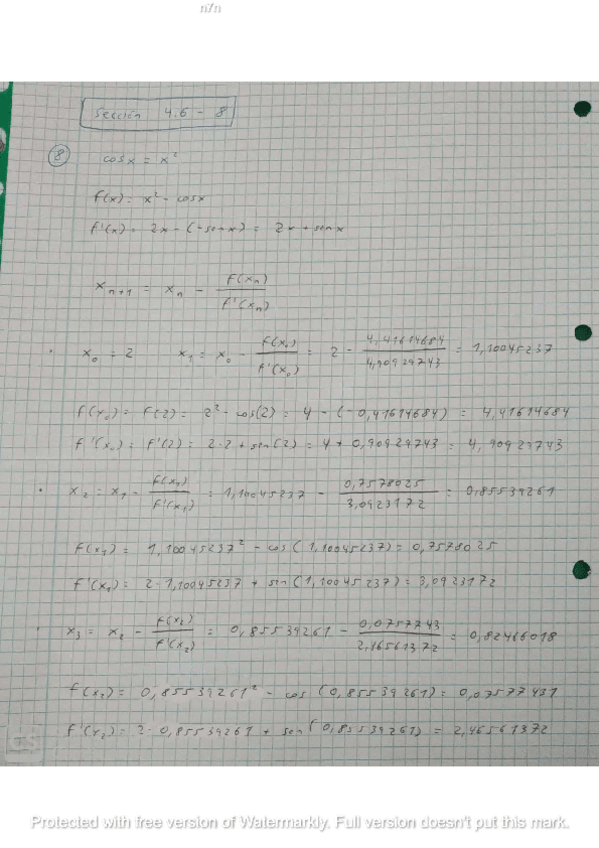 n7n
Sección 4.6 - 8
⑧ cosx = x²
f(x) = x² - cosx
f'(x) = 2x - (-senx) = 2x + senx
xₙ₊₁ = xₙ - f(xₙ) / f'(xₙ)
· x₀ = 2 x₁ = x₀ - f(x₀) / f'(x₀) = 2 - 4,41614684 / 4,90929743 = 1,10045237
f(x₀) = f(2) = 2² - cos(2) = 4 - (-0,41614684) = 4,41614684
f'(x₀) = f'(2) = 2·2 + sen(2) = 4 + 0,90929743 = 4,90929743
· x₂ = x₁ - f(x₁) / f'(x₁) = 1,10045237 - 0,7578025 / 3,0923172 = 0,85539261
f(x₁) = 1,10045237² - cos(1,10045237) = 0,7578025
f'(x₁) = 2·1,10045237 + sin(1,10045237) = 3,0923172
· x₃ = x₂ - f(x₂) / f'(x₂) = 0,85539261 - / = 0,82466018
f(x₂) = 0,85539261² - cos(0,85539261) = 0,07577431
f'(x₂) = 2·0,85539261 + sen(0,85539261) = 2,46561372
Protected with free version of Watermarkly. Full version doesn't put this mark.